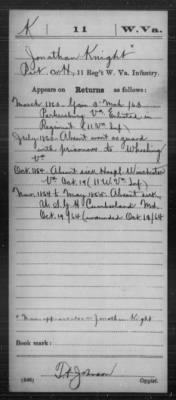 K 11 W.Va.
Jonathan Knight*
Pvt. Co. H, 11 Reg't W. Va. Infantry.
Appears on Returns as follows:
March 1863. Gain 3 Mch /63
Parkersburg Va. Enlisted in
Regiment (11 Va Inf)
July 1863. Absent went as guard
with prisoners to Wheeling
Va
Oct. 1864. Absent sick Hospl. Winchester
Va Oct. 19 (11 W. Va Inf)
Nov. 1864 to May 1865. Absent sick
at U.S.G.H. Cumberland Md.
Oct. 19/64 (wounded Oct 19/64
* Name appears also as Jonathan Kight
Book mark:
(546) Copyist.